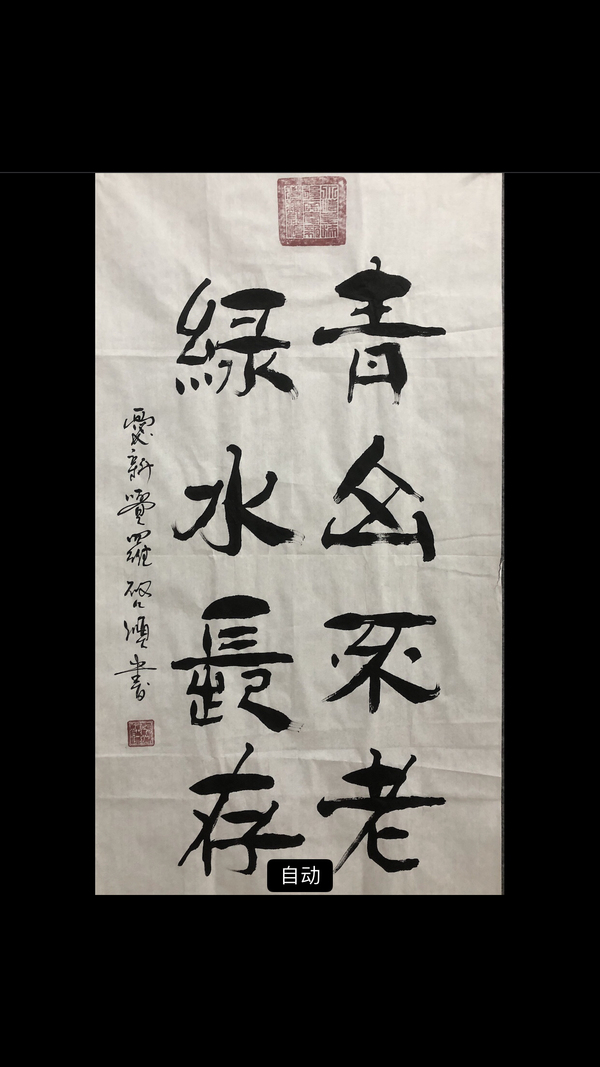 青山不老
綠水長存
愛新覺羅啓順書
自动